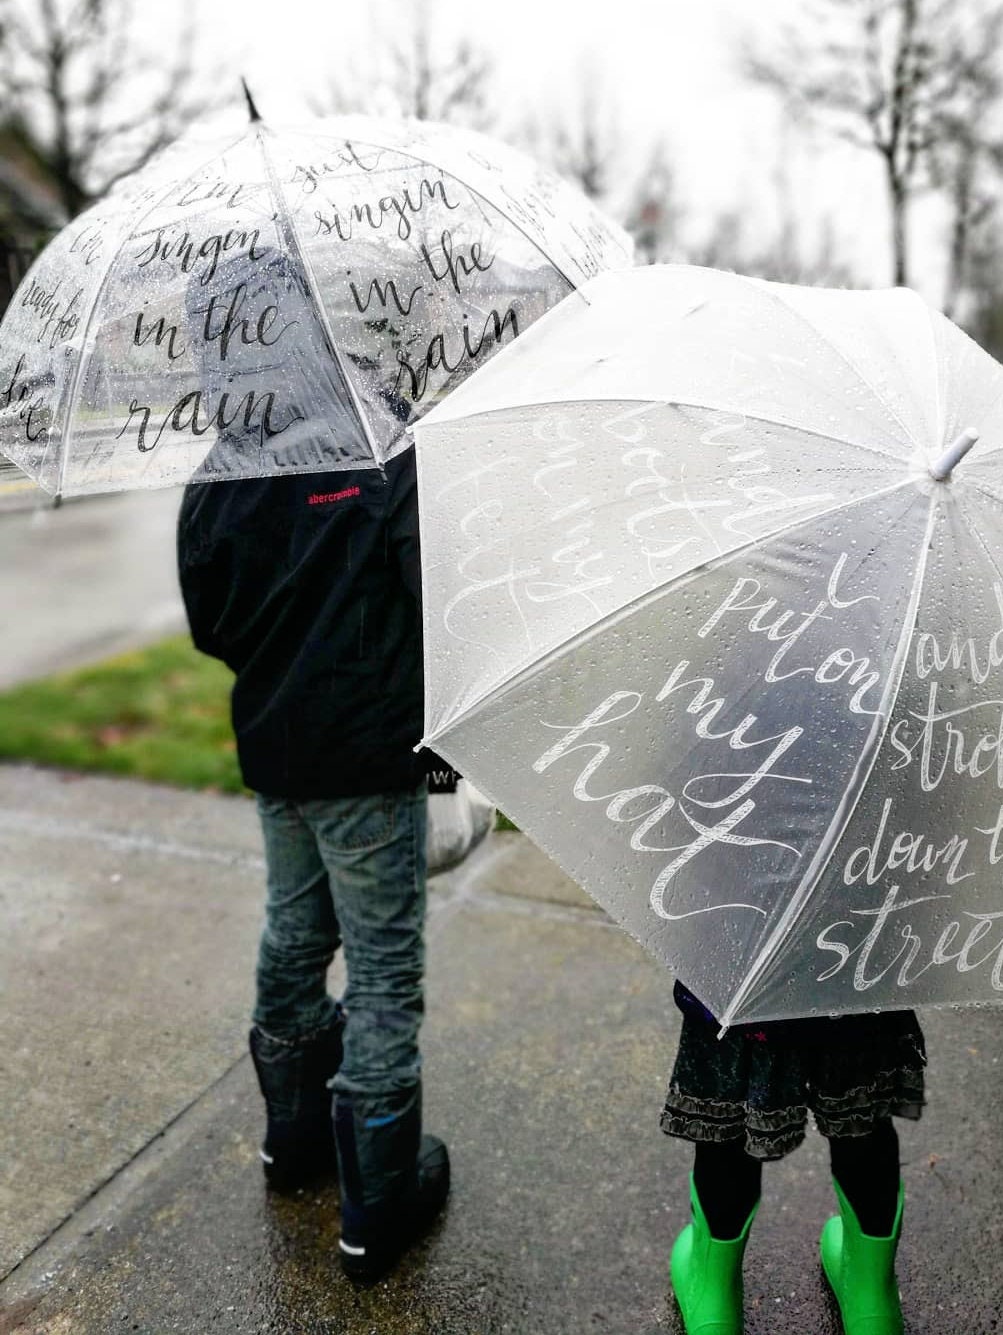 I'm
singin
in the
rain
just
singin
in the
rain
ready for
abercrombie
and
boots
on my
feet
I
put on
my
hat
and
down
street